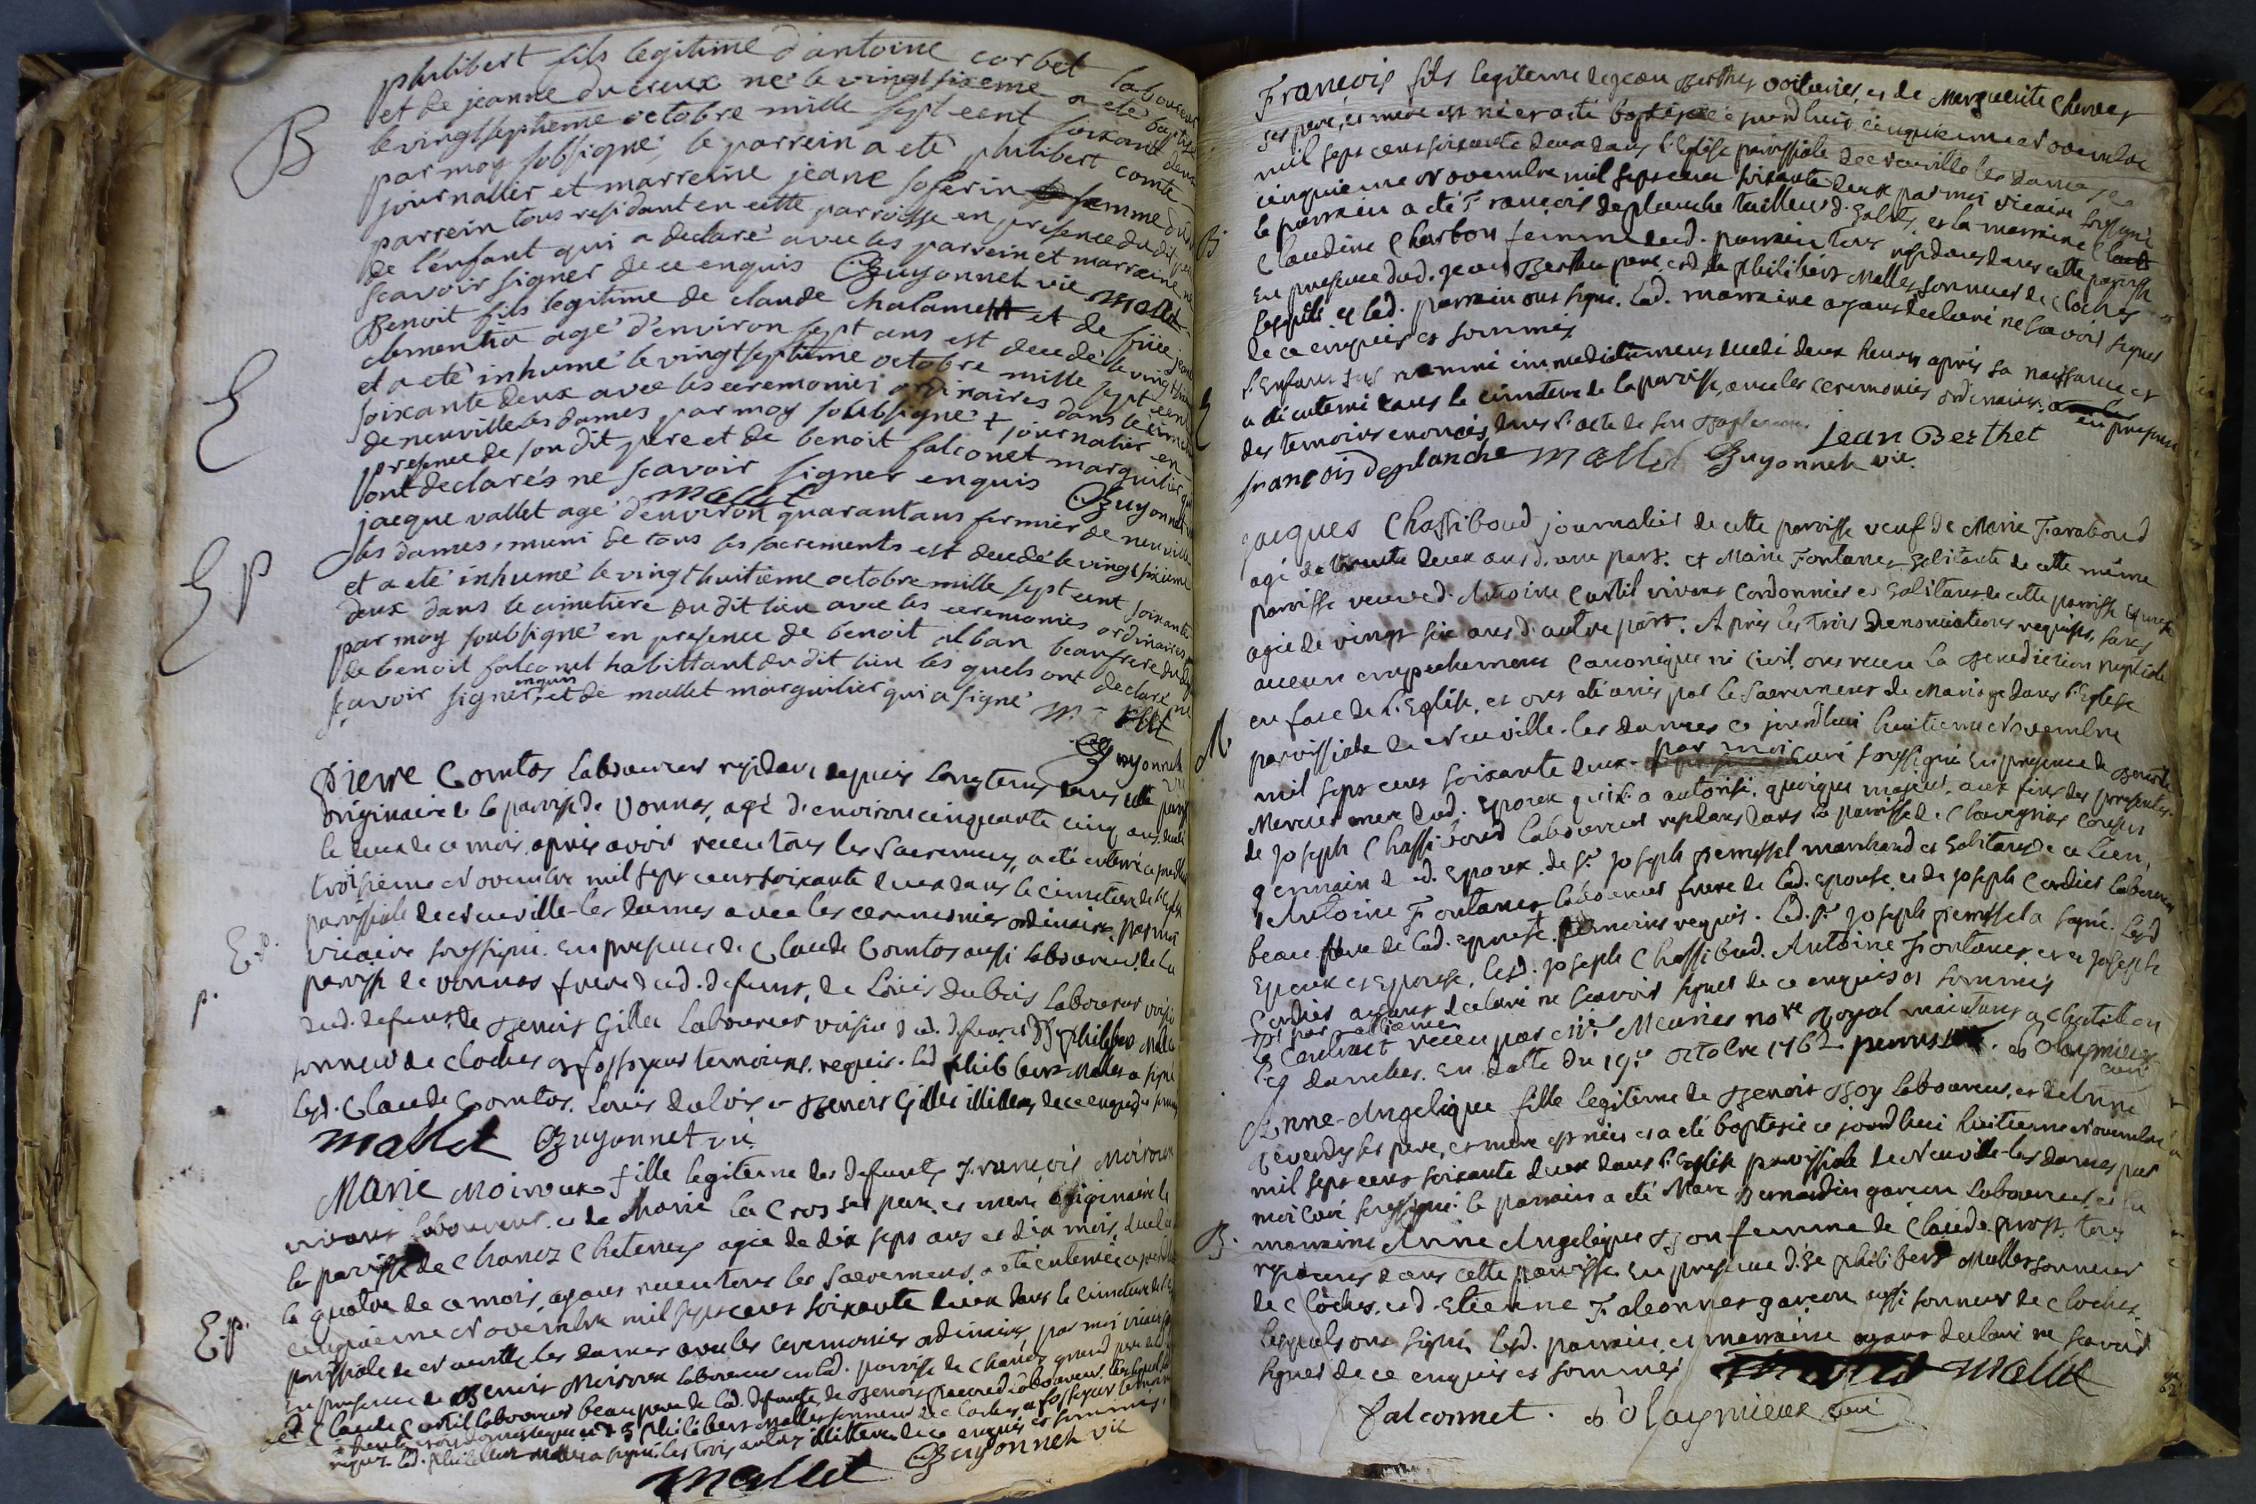 philibert fils legitime d'antoine corbet laboureur
et de jeanne ducreux né le vingtsixeme a eté baptisé
B
le vingtseptieme octobre mille sept cent soixant deux
par moy soubsigné, le parrein a eté philibert comte
journallier et marreine jeane soferin femme dudit
parrein tous residant en cette parroisse en presence du dit pere
de l'enfant qui a declaré avec les parrein et marreine ne
scavoir signer de ce enquis Guyonnet vic mallet
Benoit fils legitime de claude chalamel et de füe jeane
clementia agé d'environ sept ans est decedé le vingt
E
et a eté inhumé le vingtseptieme octobre mille sept cent
soixante deux avec les ceremonies ordinaires dans le cim
de neuville les dames par moy soubsigné + journalier en
presence de son dit pere et de benoit falconet marguilier qui
ont declarés ne scavoir signer enquis Guyonnet
mallet
jacque vallet agé d'environ quarant ans fermier de neuville
EP
les dames, muni de tous les sacrements est decedé le vingt sixieme
et a eté inhumé le vingthuitieme octobre mille sept cent soixante
deux dans le cimetiere du dit lieu avec les ceremonies ordinaires
par moy soubsigné en presence de benoit alban beaufrere du dit
de benoit falconet habittant du dit lieu les quels ont declaré ne
scavoir signer, enquis et de mallet marguilier qui a signé
mallet
Guyonnet vic
Pierre Comtos laboureur residant depuis longtems dans cette parroisse
originaire de la paroisse de Vonnas, agé d'environ cinquante cinq ans, decedé
le deux de ce mois, après avoir receu tous les Sacremens, a eté enterré ce jourdhui
troisieme Novembre mil sept cent soixante deux dans le cimetiere de l'Eglise
paroissiale de Neuville-les dames avec les ceremonies ordinaires, par moi
E.p.
vicaire soussigné en presence de Claude Comtos aussi laboureur de la
paroisse de vonnas frere dud. defunt, de Louis dubois laboureur voisin
p.
dud. defunt, de Benoit Gillet laboureur voisin dud. defunt et de philibert Mallet
sonneur de cloches et fossoyeur temoins requis. led. philibert Mallet a signé
lesd. Claude Comtos. Louis dubois et Benoit Gillet illiterés de ce enquis et sommés
mallet Guyonnet vic
Marie Moiroux fille legitime des defunts François Moiroux
vivant laboureur, et de Marie la Cros ses pere et mere, originaire de
la paroisse de Chanoz Chatenay agée de dix sept ans et dix mois, decedée
le quatre de ce mois, ayant receu tous les Sacremens, a eté enterrée ce jourdhui
E.p.
cinquieme Novembre mil sept cent soixante deux dans le cimetiere de l'Eglise
paroissiale de Neuville les dames avec les ceremonies ordinaires, par moi vicaire
en presence de Benoit Moiroux laboureur en lad. paroisse de Chanoz grand pere de lad.
et Claude Cortil laboureur beau pere de lad. defunte, de Benoit
philibert Mallet sonneur de cloches et fossoyeur temoins
requis. led. philibert Mallet a signé les trois autres illiterés de ce enquis et sommés.
mallet Guyonnet vic
François fils legiteme de Jean Berthet voiturier, et de Marguerite Chanet
ses pere, et mere est né et a eté baptisé ce jourdhui cinquieme Novembre
mil sept cent soixante deux dans l'Eglise paroissiale de Neuville les dames
cinquieme Novembre mil sept cent soixante deux par moi vicaire soussigné
B.
le parrain a eté François deplanche tailleur d'habits, et la marraine
Claudine Charbon femme dud. parrain tous residans dans cette paroisse
en presence dud. Jean Berthet pere, et de Philibert Mallet sonneur de Cloches
lesquels et led. parrain ont signé. lad. marraine ayant declaré ne scavoir signer
de ce enquis et sommés
E
l'Enfant sus nommé immediatement decedé deux heures après sa naissance et
a eté enterré dans le cimetiere de la paroisse, avec les ceremonies ordinaires, en presence
des temoins enoncés, dans l'acte de son Bapteme. Jean Berthet
françois deplanche mallet Guyonnet vic.
jacques Chassiboud journalier de cette paroisse veuf de Marie Faraboud
agé de trente deux ans d'une part. et Marie Fontanes habitante de cette même
paroisse veuve d'Antoine Cortil vivant Cordonnier et habitant de cette paroisse
agée de vingt six ans d'autre part. Après les trois denonciations requises, sans
aucun empechement Canonique ni Civil, ont receu la Benediction nuptiale
en face de l'Eglise, et ont eté unis par le Sacrement de Mariage dans l'Eglise
M
paroissiale de Neuville-les dames ce jourdhui huitieme Novembre
mil sept cent soixante deux par moi curé soussigné En presence de
Mercier mere dud. Epoux qui l'a autorisé, quoique majeur, aux fins des presentes.
de joseph Chassiboud laboureur residant dans la paroisse de Chaveyriat Cousin
germain dud. Epoux, de Sr. joseph Perrussel marchand et habitant de ce lieu,
d'Antoine Fontanes laboureur frere de lad. Epouse, et de joseph Cordier laboureur
beau frere de lad. epouse. temoins requis. led. Sr. joseph Perrussel a signé. lesd.
Epoux et Epouse, lesd. joseph Chassiboud. Antoine Fontanes, et joseph
Cordier ayant declaré ne scavoir signer de ce enquis et sommés
le Contract receu par Me. Meunier nore Royal à Chatillon
les dombes. En datte du 19e. octobre 1762 perrussel. d'Olagnieux
curé
Anne-Angelique fille legitime de Benoit Boy laboureur, et d'Anne
ses pere, et mere est née et a eté baptisée ce jourdhui huitieme Novembre
mil sept cent soixante deux dans l'Eglise paroissiale de Neuville-les dames par
moi Curé soussigné: le parrain a eté Marc Bernardin garcon laboureur, et la
B.
marraine Anne Angelique Bon femme de Claude prost, tous
residans dans cette paroisse. En presence de Philibert Mallet sonneur
de Cloches, et d'Etienne Falconnet garçon aussi sonneur de Cloches.
lesquels ont signé. Lesd. parrain, et marraine ayant declaré ne scavoir
signer de ce enquis et sommés mallet
falconnet. d'Olagnieux curé